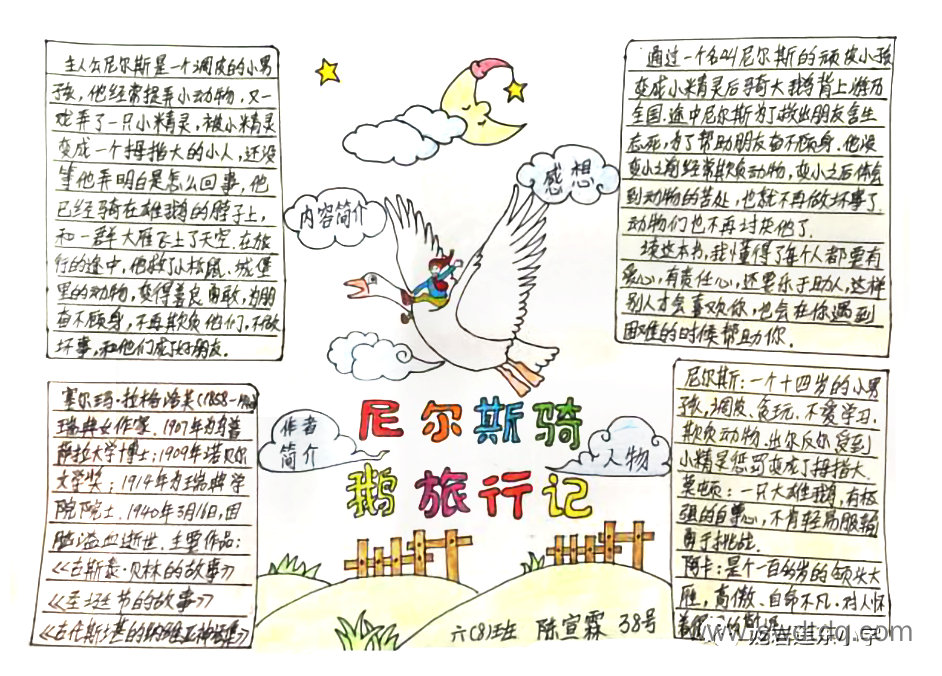 主人公尼尔斯是一个调皮的小男
孩,他经常捉弄小动物,又一
戏弄了一只小精灵,被小精灵
变成一个拇指大的小人,还没
等他弄明白是怎么回事,他
已经骑在雄鹅的脖子上,
和一群大雁飞上了天空.在旅
行的途中,他救了小松鼠.城堡
里的动物,变得善良勇敢,为朋
奋不顾身,不再欺负他们,不做
坏事,和他们成了好朋友.
内容简介
感想
通过一个名叫尼尔斯的顽皮小孩
变成小米精灵后骑大鹅背上游历
全国.途中尼尔斯为了救出朋友舍生
忘死,为了帮助朋友奋不顾身.他没
变小之前经常欺负动物,变小之后体会
到动物的苦处,也就不再做坏事了
动物们也不再讨厌他了.
读这本书,我懂得了每个人都要有
爱心,有责任心,还要乐于助人,这样
别人才会喜欢你,也会在你遇到
困难的时候帮助你.
塞尔玛·拉格洛芙(1858-1940)
瑞典女作家.1907年为普
萨拉大学博士;1909年诺贝尔
文学奖;1914年为瑞典学
院院士.1940年3月16日,因
脑溢血逝世.主要作品:
《古斯泰·贝林的故事》
《圣诞节的故事》
作者
简介
尼尔斯骑
鹅旅行记
人物
尼尔斯:一个十四岁的小男
孩,调皮、贪玩、不爱学习.
欺负动物.出尔反尔受到
小精灵惩罚变成了拇指大.
莫顿:一只大雄鹅,有极
强的自尊心,不肯轻易服输
勇于挑战.
阿卡:是个一百多岁的领头大
雁,高傲、自命不凡.对人怀
六(8)班 陈宣霖 38号